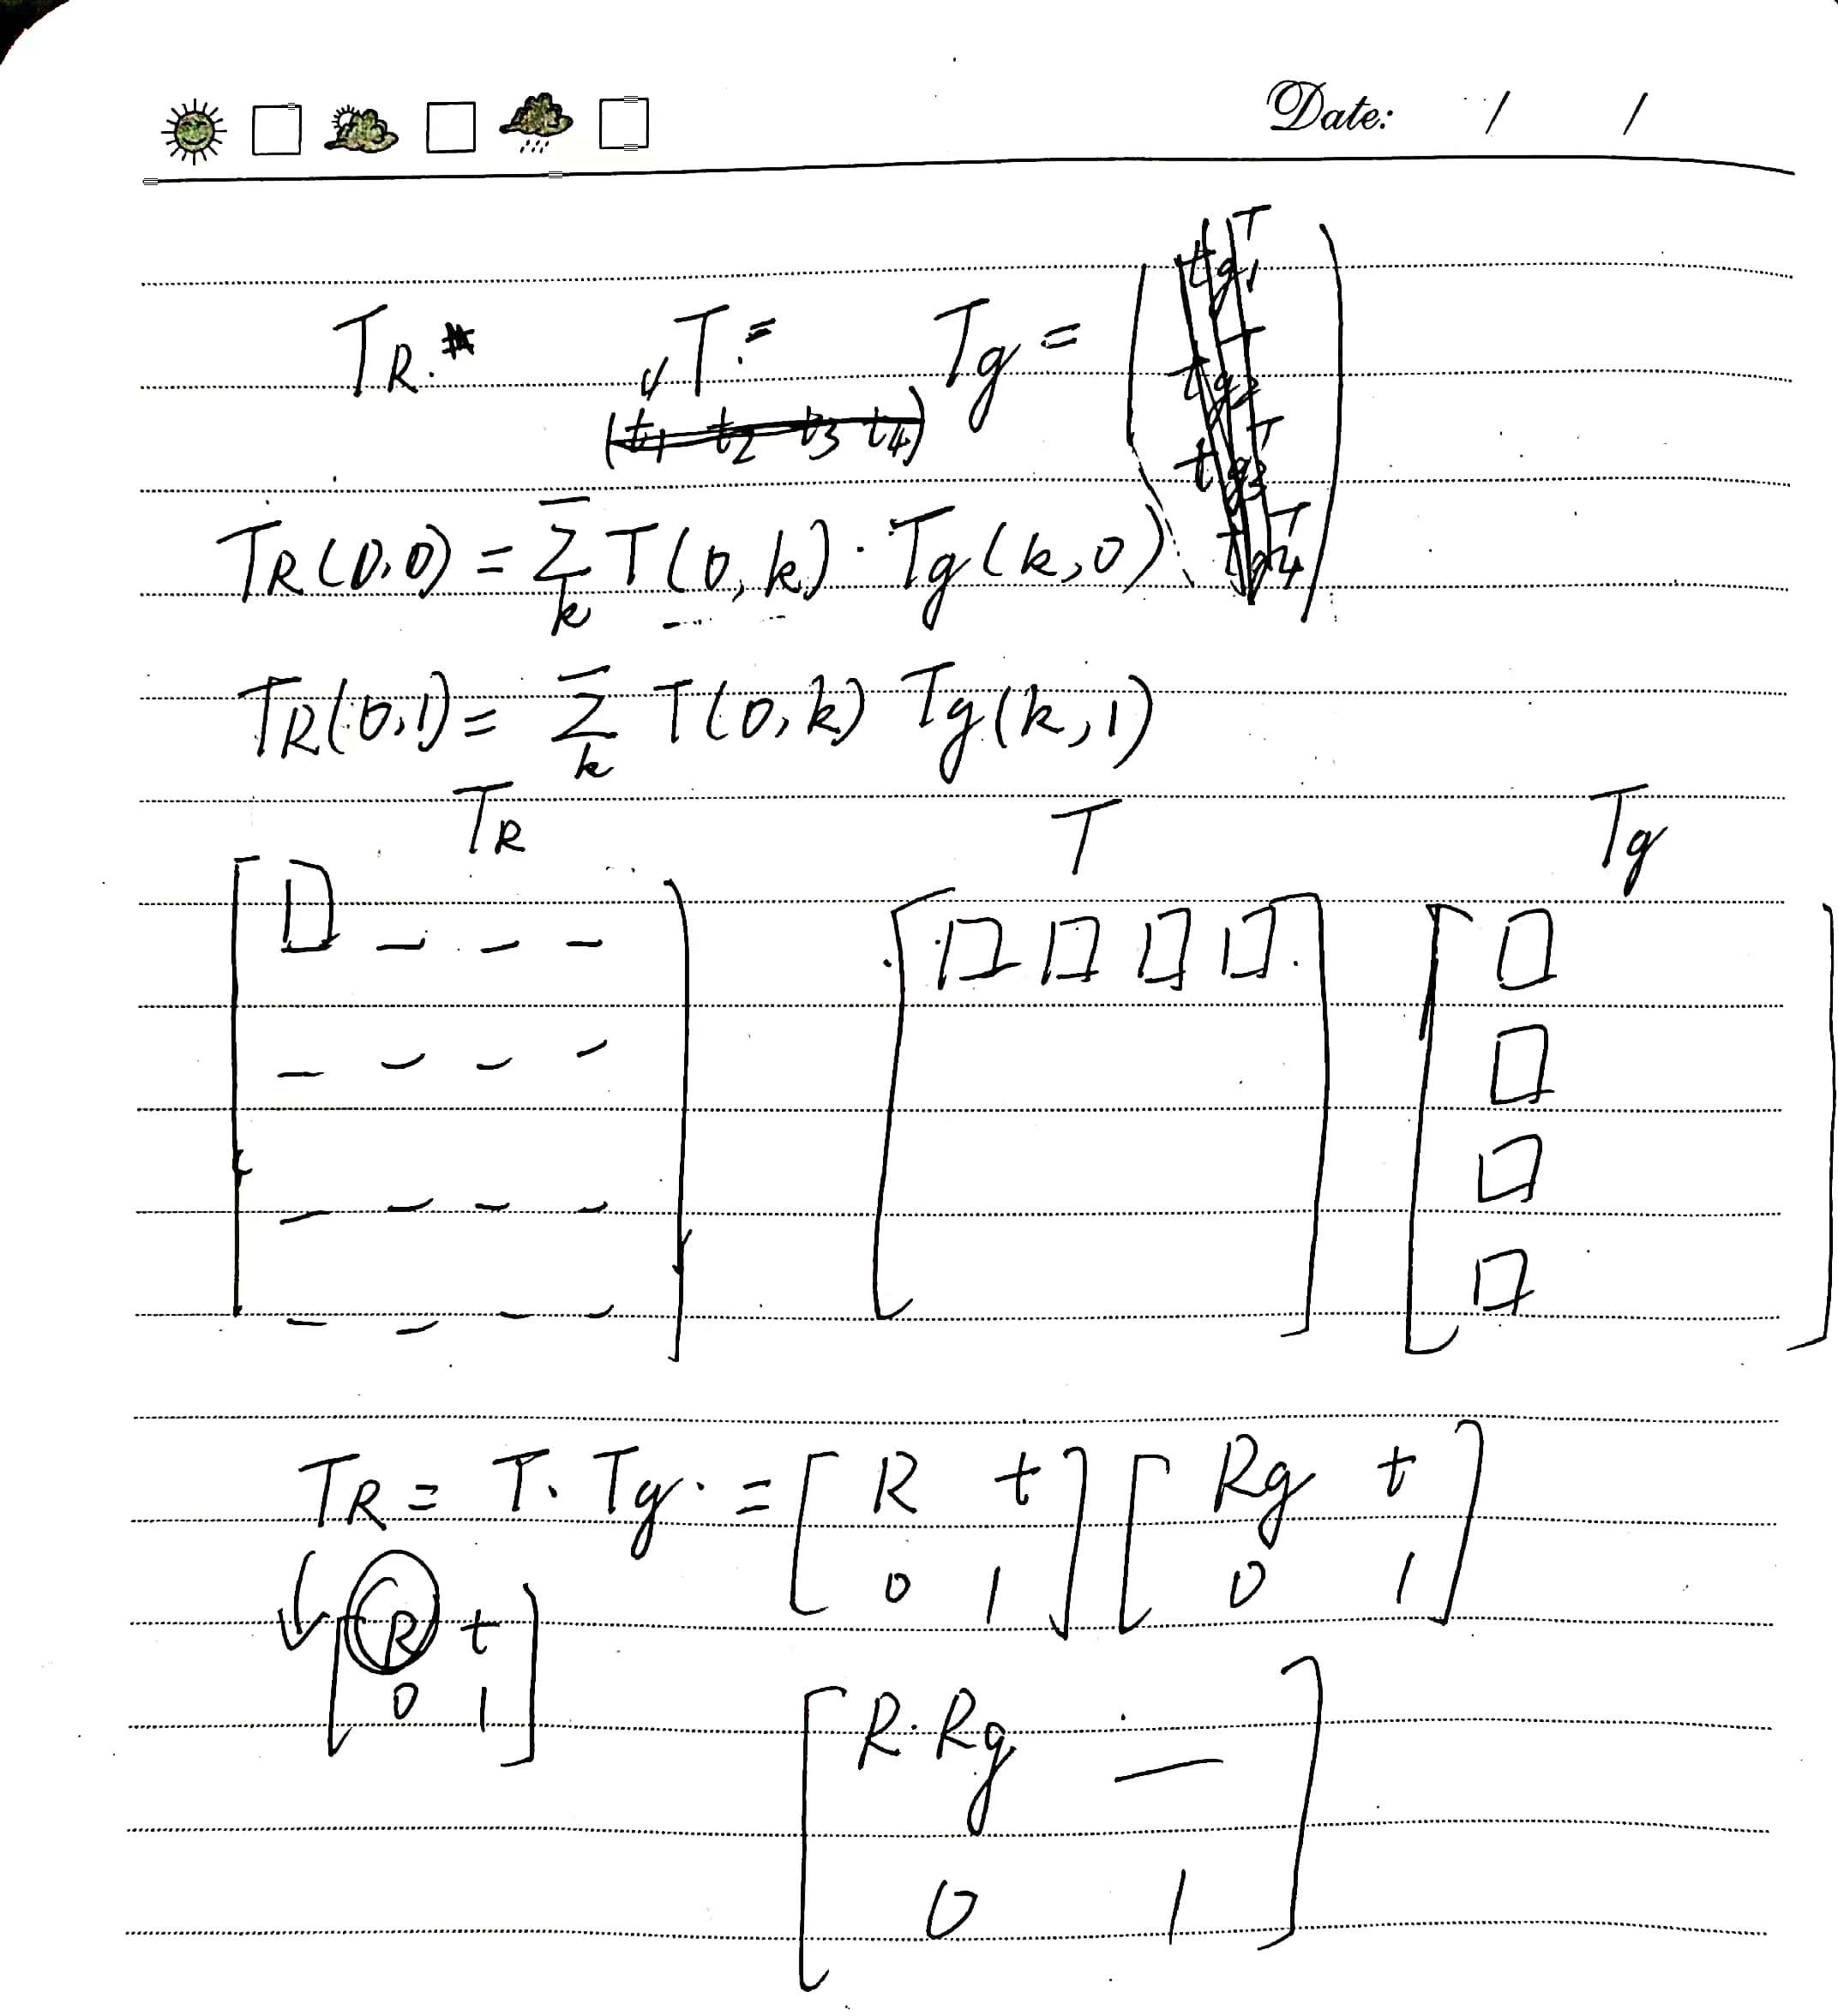 Date: / /
TR. T = Tg =
(t1 t2 t3 t4)
tg1^T
tg2^T
tg3^T
tg4^T
TR(0,0) = Σ_k T(0,k) · Tg(k,0)
TR(0,1) = Σ_k T(0,k) Tg(k,1)
TR T Tg
TR = T · Tg · = [ R t ] [ Rg t ]
0 1 0 1
[ R t ]
0 1
[ R·Rg — ]
0 1